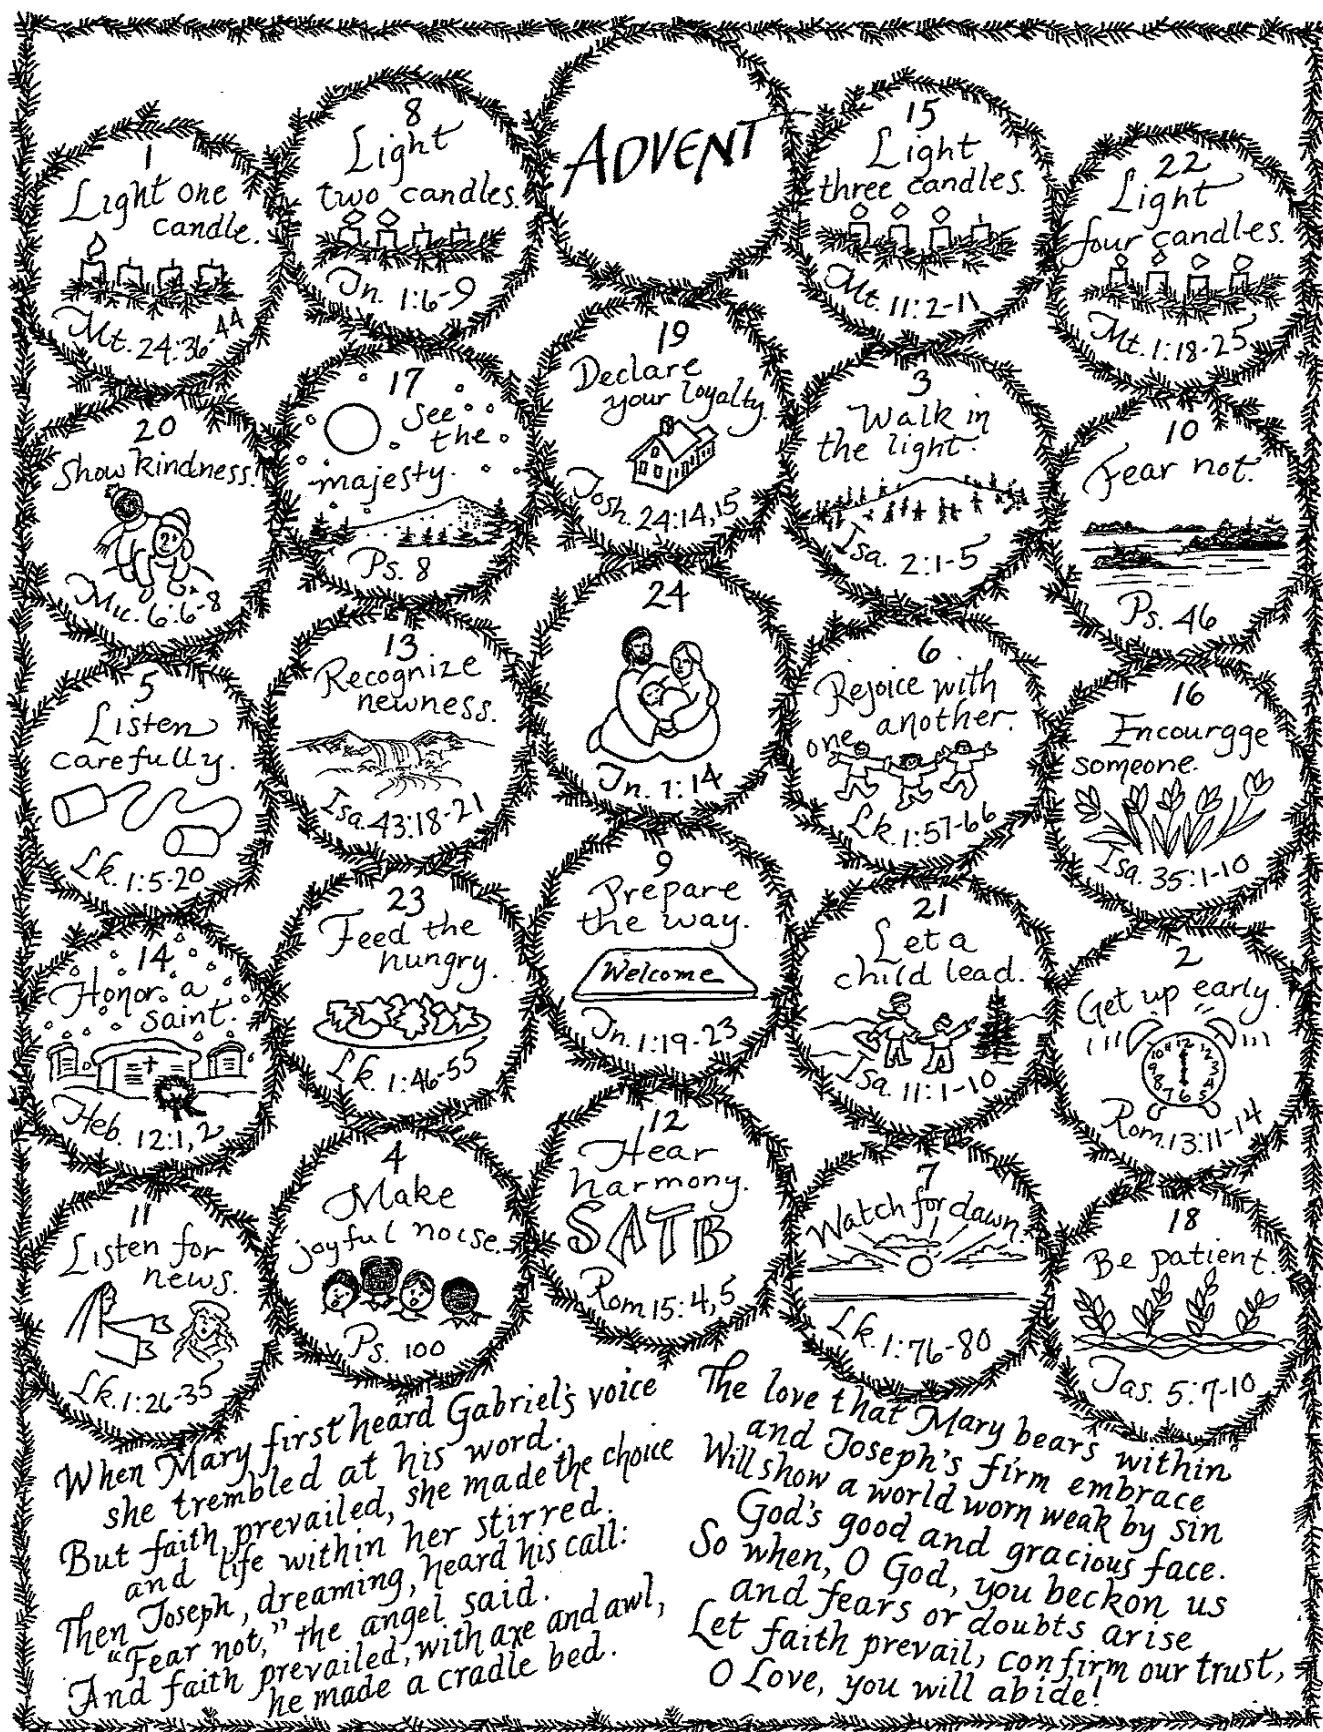 ADVENT
1
Light one
candle.
Mt. 24:36-44
8
Light
two candles.
Jn. 1:6-9
15
Light
three candles.
Mt. 11:2-11
22
Light
four candles.
Mt. 1:18-25
20
Show kindness!
Mic. 6:6-8
17
See
the
majesty.
Ps. 8
19
Declare
your loyalty.
Josh. 24:14,15
3
Walk in
the light.
Isa. 2:1-5
10
Fear not.
Ps. 46
5
Listen
carefully.
Lk. 1:5-20
13
Recognize
newness.
Isa. 43:18-21
24
Jn. 1:14
6
Rejoice with
one another.
Lk. 1:57-66
16
Encourage
someone.
Isa. 35:1-10
14
Honor a
saint.
Heb. 12:1,2
23
Feed the
hungry.
Lk. 1:46-55
9
Prepare
the way.
Welcome
Jn. 1:19-23
21
Let a
child lead.
Isa. 11:1-10
2
Get up early.
Rom. 13:11-14
11
Listen for
news.
Lk. 1:26-35
4
Make
joyful noise.
Ps. 100
12
Hear
harmony.
SATB
Rom 15:4,5
7
Watch for dawn.
Lk. 1:76-80
18
Be patient.
Jas. 5:7-10
When Mary first heard Gabriel's voice
she trembled at his word.
But faith prevailed, she made the choice
and life within her stirred.
Then Joseph, dreaming, heard his call:
"Fear not," the angel said.
And faith prevailed, with axe and awl,
he made a cradle bed.
The love that Mary bears within
and Joseph's firm embrace
Will show a world worn weak by sin
God's good and gracious face.
So when, O God, you beckon us
and fears or doubts arise
Let faith prevail, confirm our trust,
O Love, you will abide!